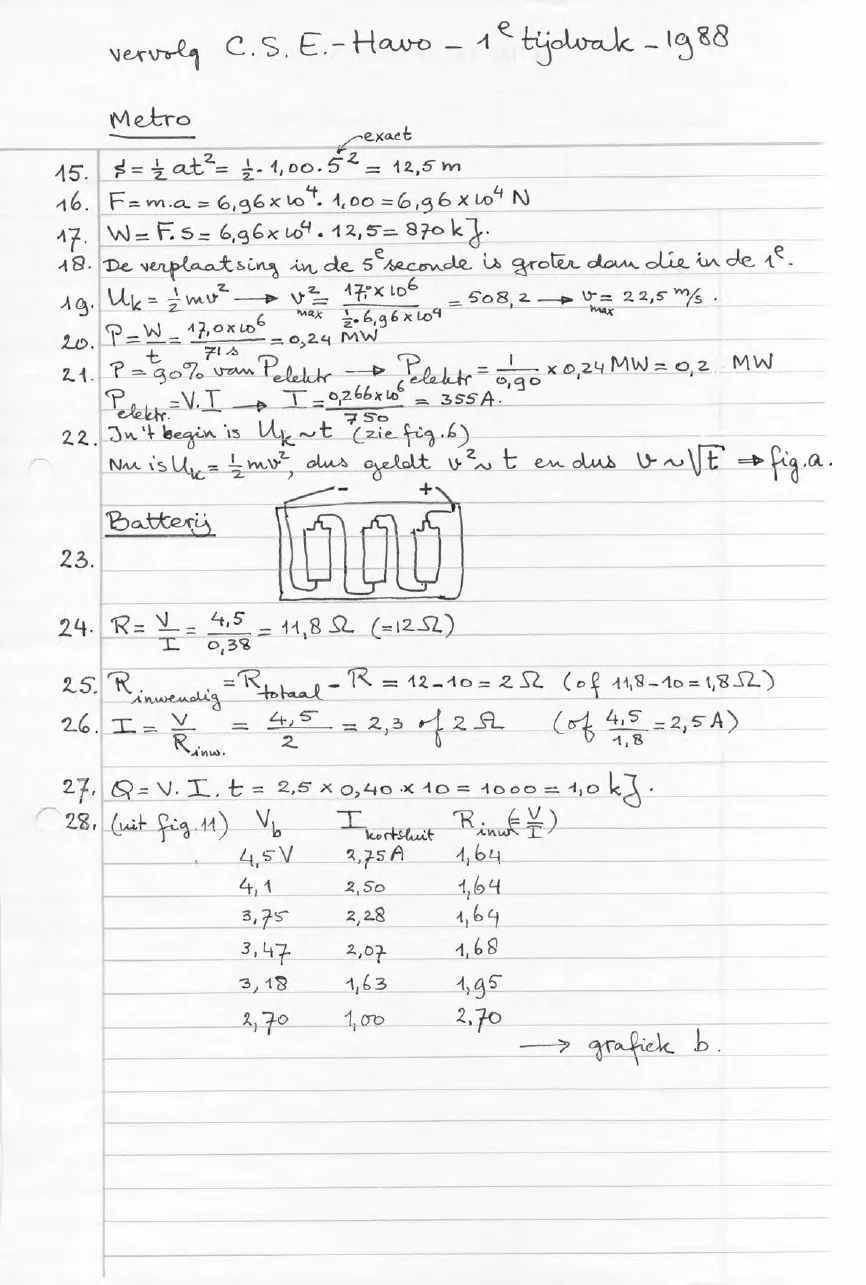 vervolg C.S.E.-Havo - 1e tijdvak - 1988
Metro
exact
15. s = ½at² = ½ . 1,00 . 5² = 12,5 m
16. F = m.a = 6,96 x 10⁴ . 1,00 = 6,96 x 10⁴ N
17. W = F.s = 6,96 x 10⁴ . 12,5 = 870 kJ.
18. De verplaatsing in de 5e seconde is groter dan die in de 1e.
19. Uk = ½mv² → v²max = 17,0 x 10⁶ / ½.6,96 x 10⁴ = 508,2 → vmax = 22,5 m/s.
20. P = W/t = 17,0 x 10⁶ / 71 s = 0,24 MW
21. P = 90% van Pelektr → Pelektr = 1/0,90 x 0,24 MW = 0,2 MW
Pelektr. = V.I → I = 0,266 x 10⁶ / 750 = 355 A.
22. In 't begin is Uk ~ t (zie fig. 6)
Nu is Uk = ½mv², dus geldt v² ~ t en dus v ~ √t ⇒ fig. a.
Batterij
- +
23.
24. R = V/I = 4,5/0,38 = 11,8 Ω (=12 Ω)
25. Rinwendig = Rtotaal - R = 12 - 10 = 2 Ω (of 11,8 - 10 = 1,8 Ω)
26. I = V/Rinw. = 4,5/2 = 2,3 of 2 Ω (of 4,5/1,8 = 2,5 A)
27. Q = V.I.t = 2,5 x 0,40 x 10 = 1000 = 1,0 kJ.
28. (uit fig. 11) Vb Ikortsluit Rinw (= V/I)
4,5 V 2,75 A 1,64
4,1 2,50 1,64
3,75 2,28 1,64
3,47 2,07 1,68
3,18 1,63 1,95
2,70 1,00 2.70
→ grafiek b.